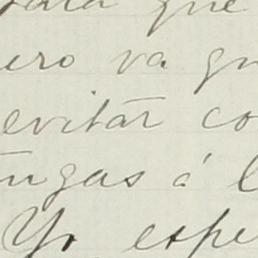 para que
ero va qu
evitar co
ngas á l
Yo espe